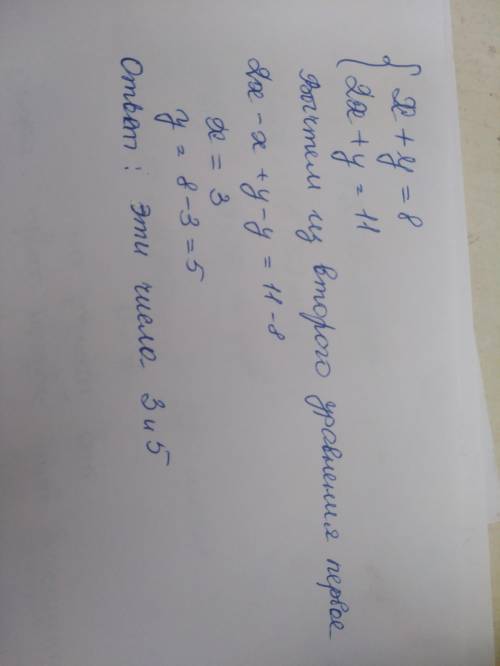 { x + y = 8
2x + y = 11
Вычтем из второго уравнения первое
2x - x + y - y = 11 - 8
x = 3
y = 8 - 3 = 5
Ответ: эти числа 3 и 5